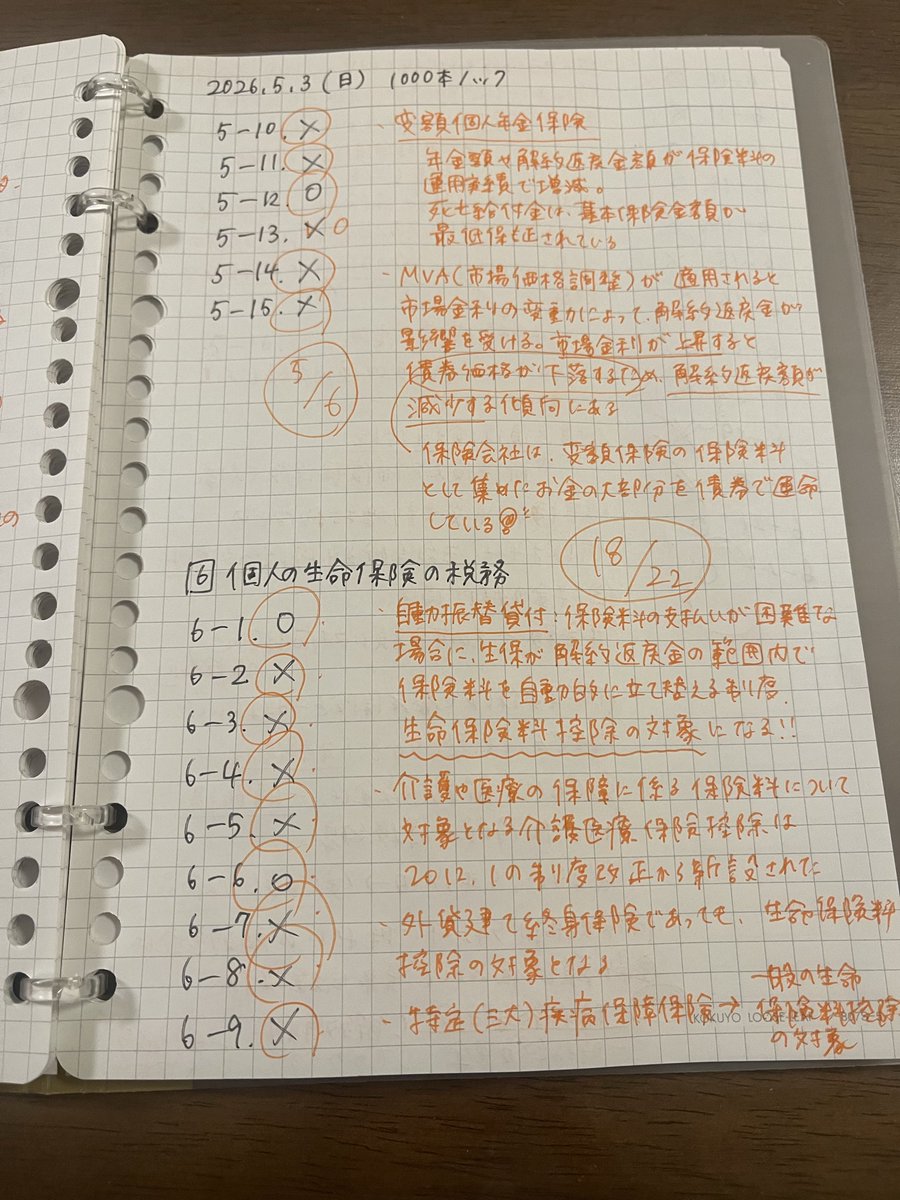 2026.5.3(日) 1000本ノック
5-10. ×
5-11. ×
5-12. 0
5-13. × 0
5-14. ×
5-15. ×
5/6
・変額個人年金保険
年金額や解約返戻金額が保険料の
運用実績で増減。
死亡給付金は、基本保険金額が
最低保証されている
・MVA(市場価格調整)が適用されると
市場金利の変動によって、解約返戻金が
影響を受ける。市場金利が上昇すると
債券価格が下落するため、解約返戻額が
減少する傾向にある
保険会社は、変額保険の保険料
として集めたお金の大部分を債券で運命
している
18/22
6 個人の生命保険の税務
6-1. 0
6-2 ×
6-3. ×
6-4. ×
6-5. ×
6-6. 0
6-7. ×
6-8. ×
6-9. ×
・自動振替貸付:保険料の支払いが困難な
場合に、生保が解約返戻金の範囲内で
保険料を自動的に立て替える制度.
生命保険料控除の対象になる!!
・介護や医療の保障に係る保険料について
対象となる介護医療保険控除は
2012.1の制度改正から新設された
・外貨建て終身保険であっても、生命保険料
控除の対象となる
・特定(三大)疾病保障保険→一般の生命
保険料控除
の対象
KOKUYO LOOSE-LEAF